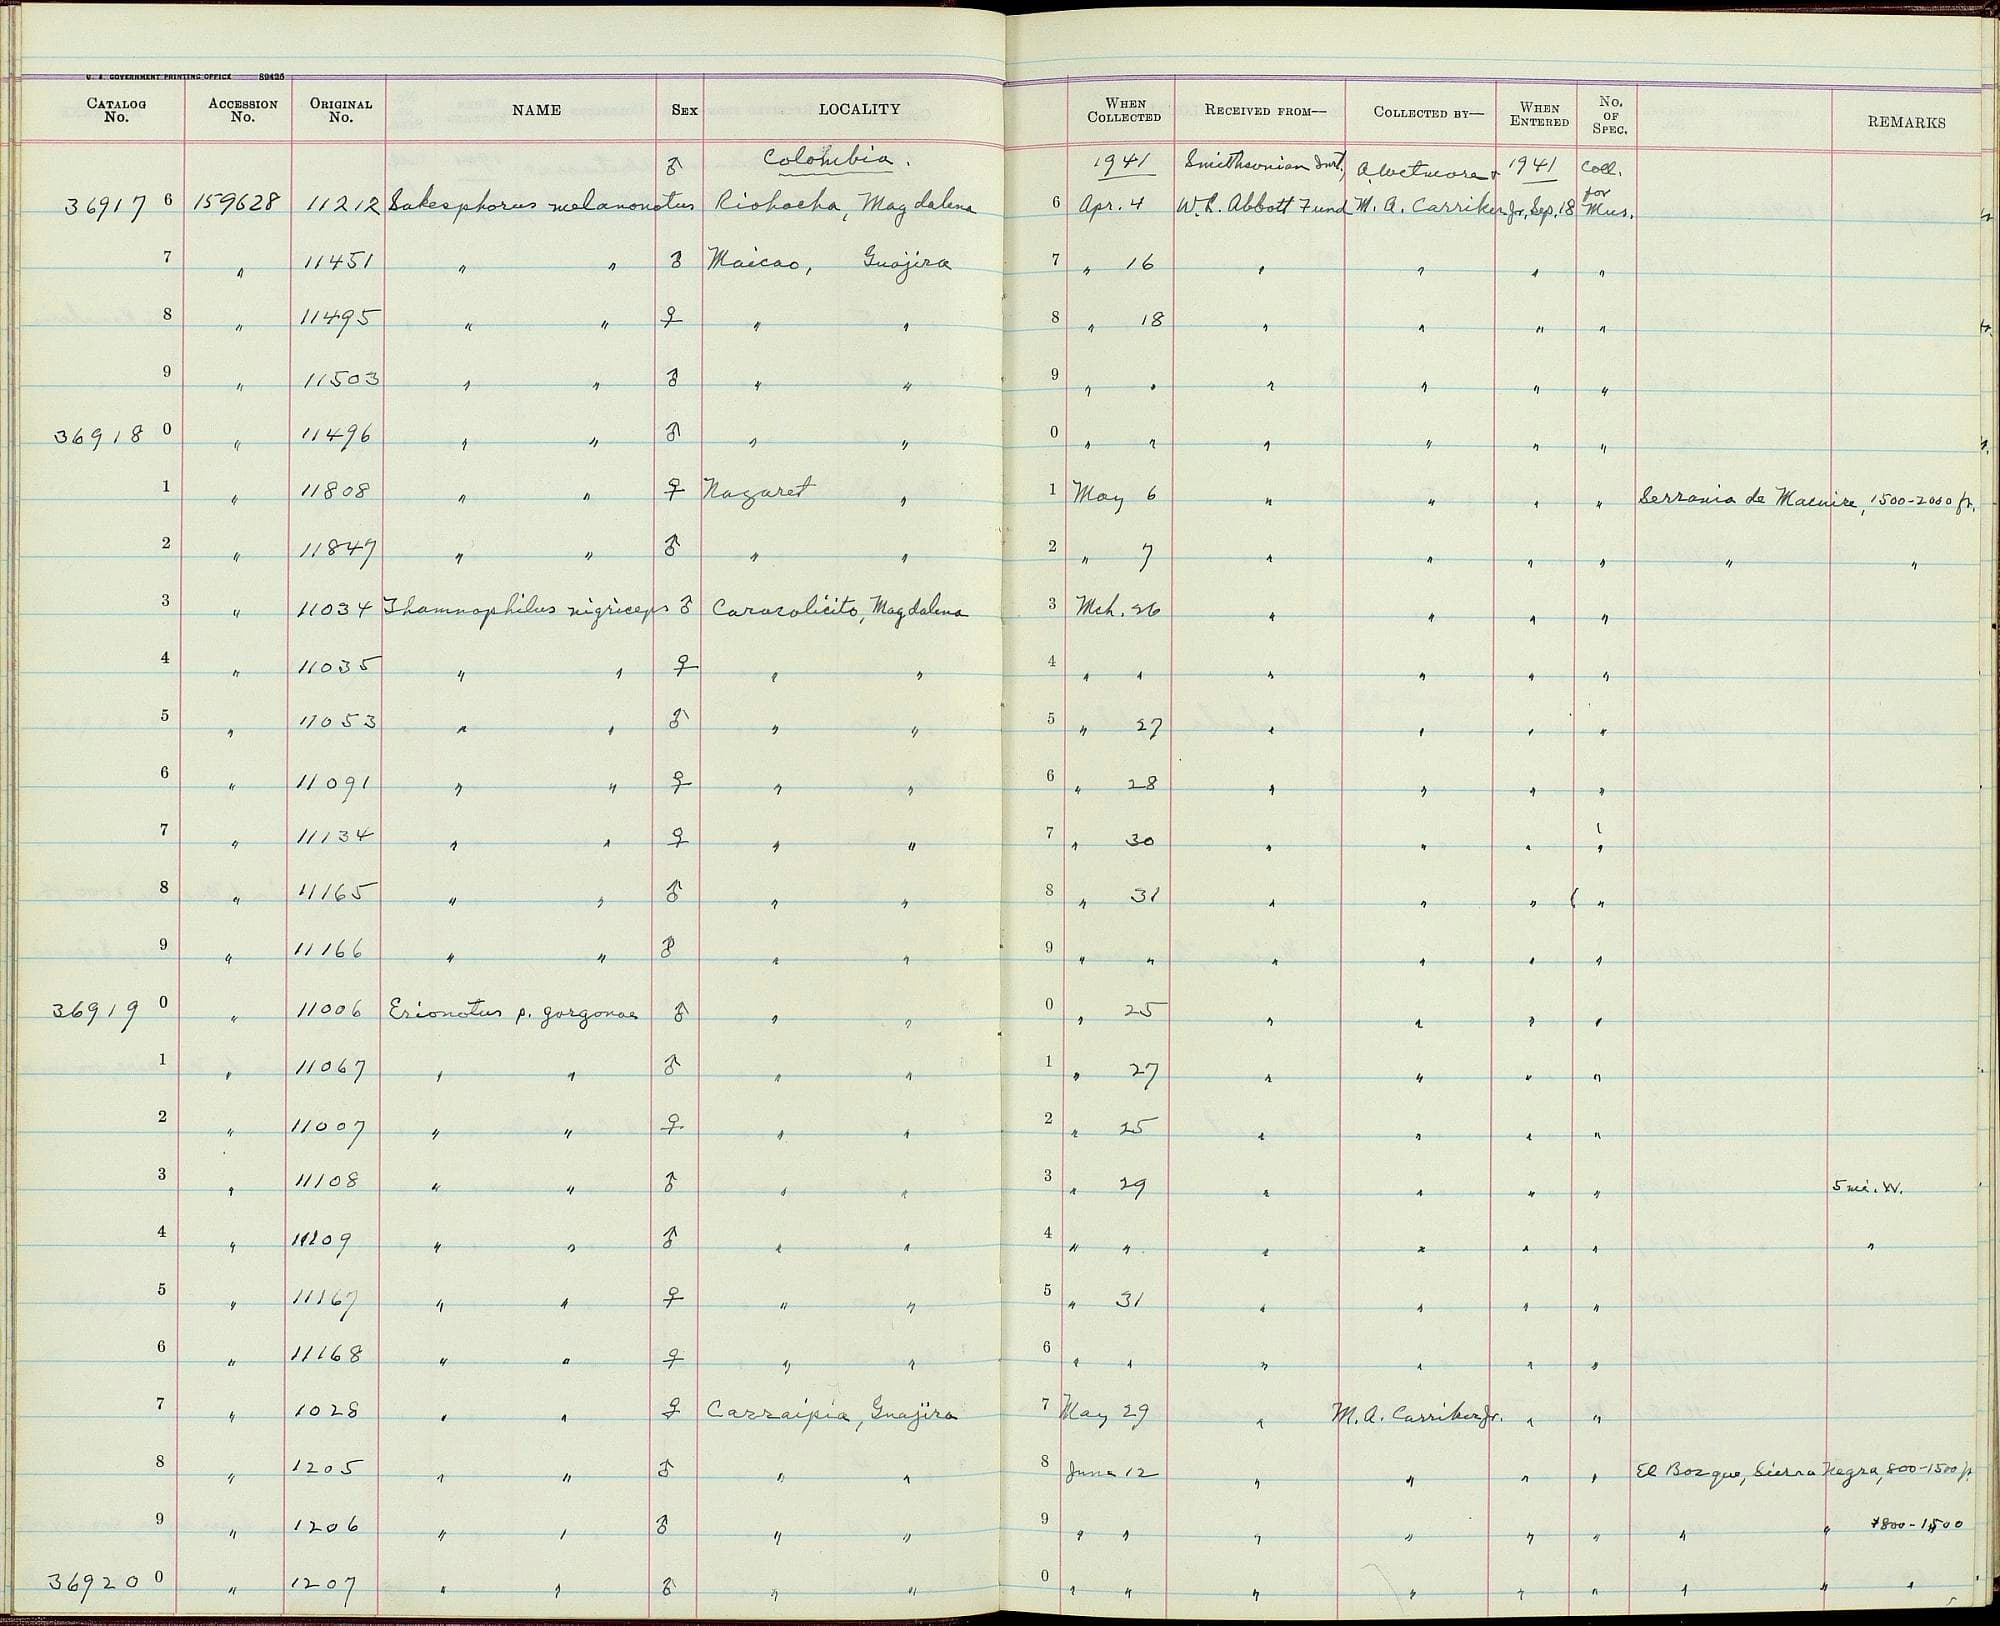 U. S. GOVERNMENT PRINTING OFFICE 89425
CATALOG No. ACCESSION No. ORIGINAL No. NAME SEX LOCALITY WHEN COLLECTED RECEIVED FROM— COLLECTED BY— WHEN ENTERED No. OF SPEC. REMARKS
♂ Colombia. 1941 Smithsonian Inst., A. Wetmore & 1941 Coll. for
36917 6 159628 11212 Sakesphorus melanonotus Riohacha, Magdalena 6 Apr. 4 W. L. Abbott Fund M. A. Carriker Jr. Sep. 18 Mus.
7 " 11451 " " ♂ Maicao, Guajira 7 " 16 " " " "
8 " 11495 " " ♀ " " 8 " 18 " " " "
9 " 11503 " " ♂ " " 9 " " " " " "
36918 0 " 11496 " " ♂ " " 0 " " " " " "
1 " 11808 " " ♀ Nazaret " 1 May 6 " " " " Serrania de Macuire, 1500-2000 ft.
2 " 11847 " " ♂ " " 2 " 7 " " " " " "
3 " 11034 Thamnophilus nigriceps ♂ Caracolicito, Magdalena 3 Mch. 26 " " " "
4 " 11035 " " ♀ " " 4 " " " " " "
5 " 11053 " " ♂ " " 5 " 27 " " " "
6 " 11091 " " ♀ " " 6 " 28 " " " "
7 " 11134 " " ♀ " " 7 " 30 " " " "
8 " 11165 " " ♂ " " 8 " 31 " " " "
9 " 11166 " " ♂ " " 9 " " " " " "
36919 0 " 11006 Erionotus p. gorgonae ♂ " " 0 " 25 " " " "
1 " 11067 " " ♂ " " 1 " 27 " " " "
2 " 11007 " " ♀ " " 2 " 25 " " " "
3 " 11108 " " ♂ " " 3 " 29 " " " " 5 mi. W.
4 " 11109 " " ♂ " " 4 " " " " " " "
5 " 11167 " " ♀ " " 5 " 31 " " " "
6 " 11168 " " ♀ " " 6 " " " " " "
7 " 1028 " " ♀ Carraipia, Guajira 7 May 29 " M. A. Carriker Jr. " "
8 " 1205 " " ♂ " " 8 June 12 " " " " El Bosque, Sierra Negra, 800-1500 ft.
9 " 1206 " " ♂ " " 9 " " " " " " " " 800-1500
36920 0 " 1207 " " ♂ " " 0 " " " " " " " " "